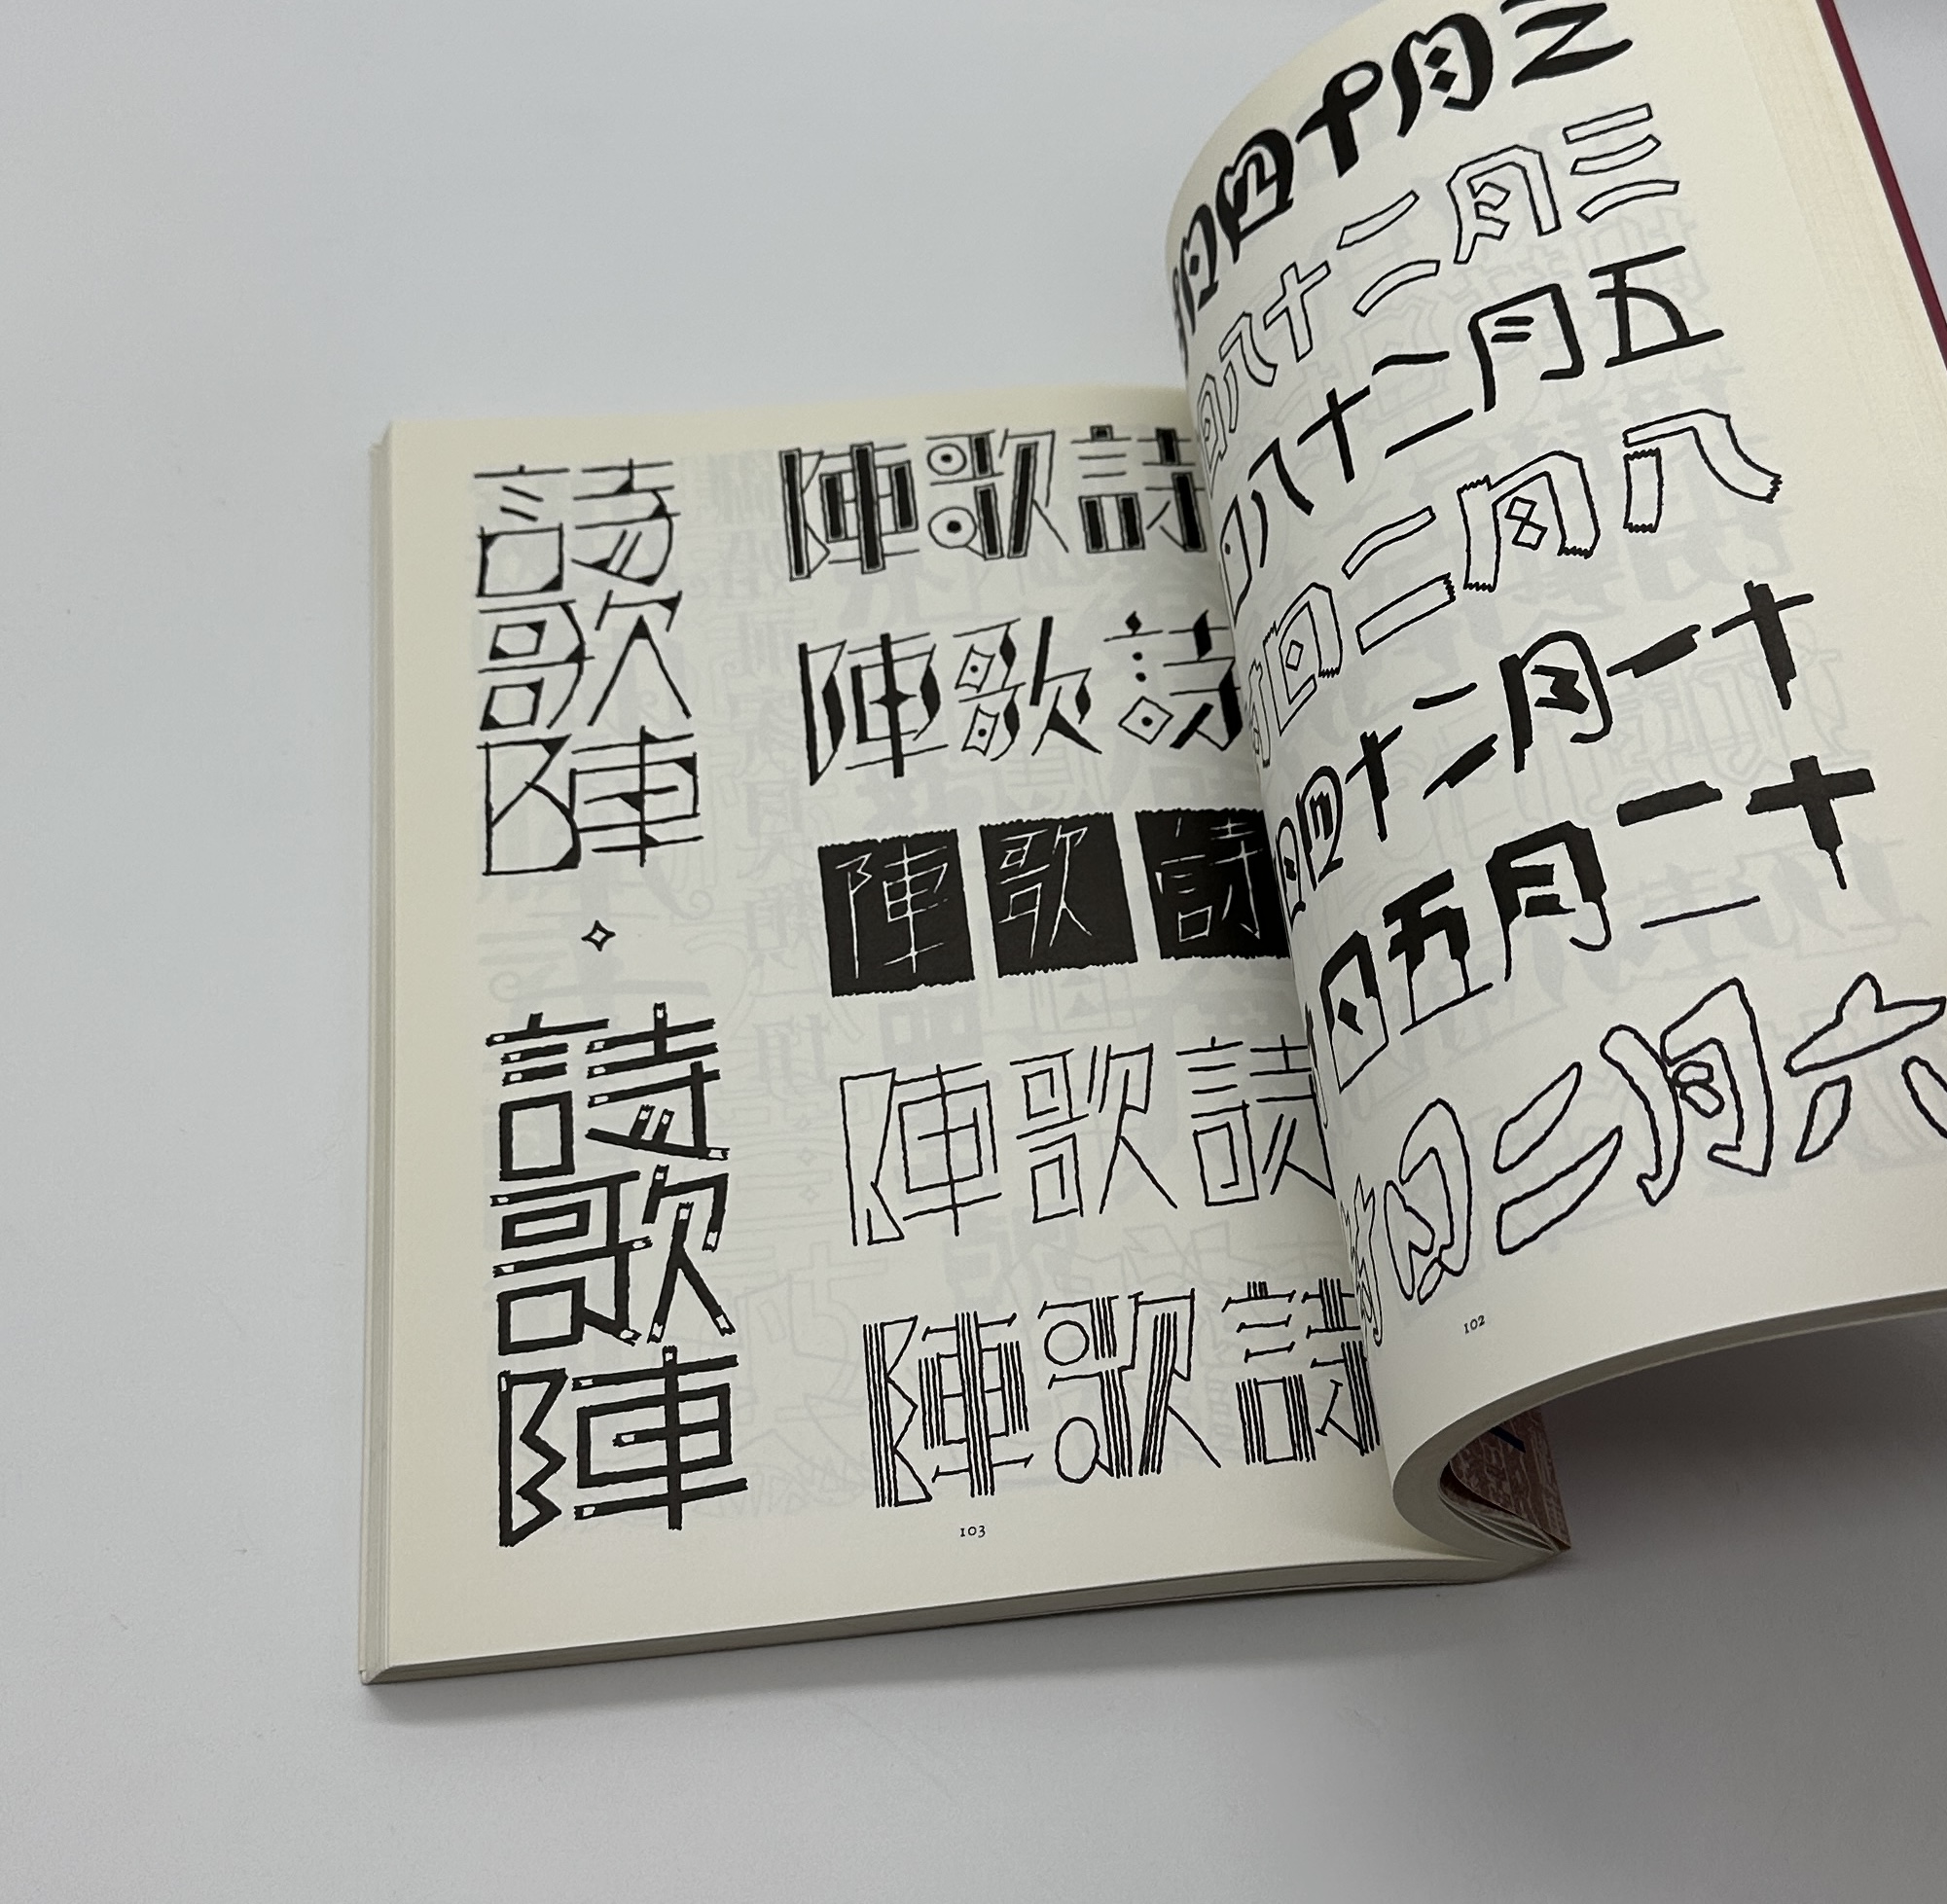 二月十四日
三月二十八日
五月二十八日
八月二日
十一月二十四日
十二月五日
六月二日
102
詩歌陣
詩歌陣
詩歌陣
詩歌陣
詩歌陣
詩歌陣
詩歌陣
103